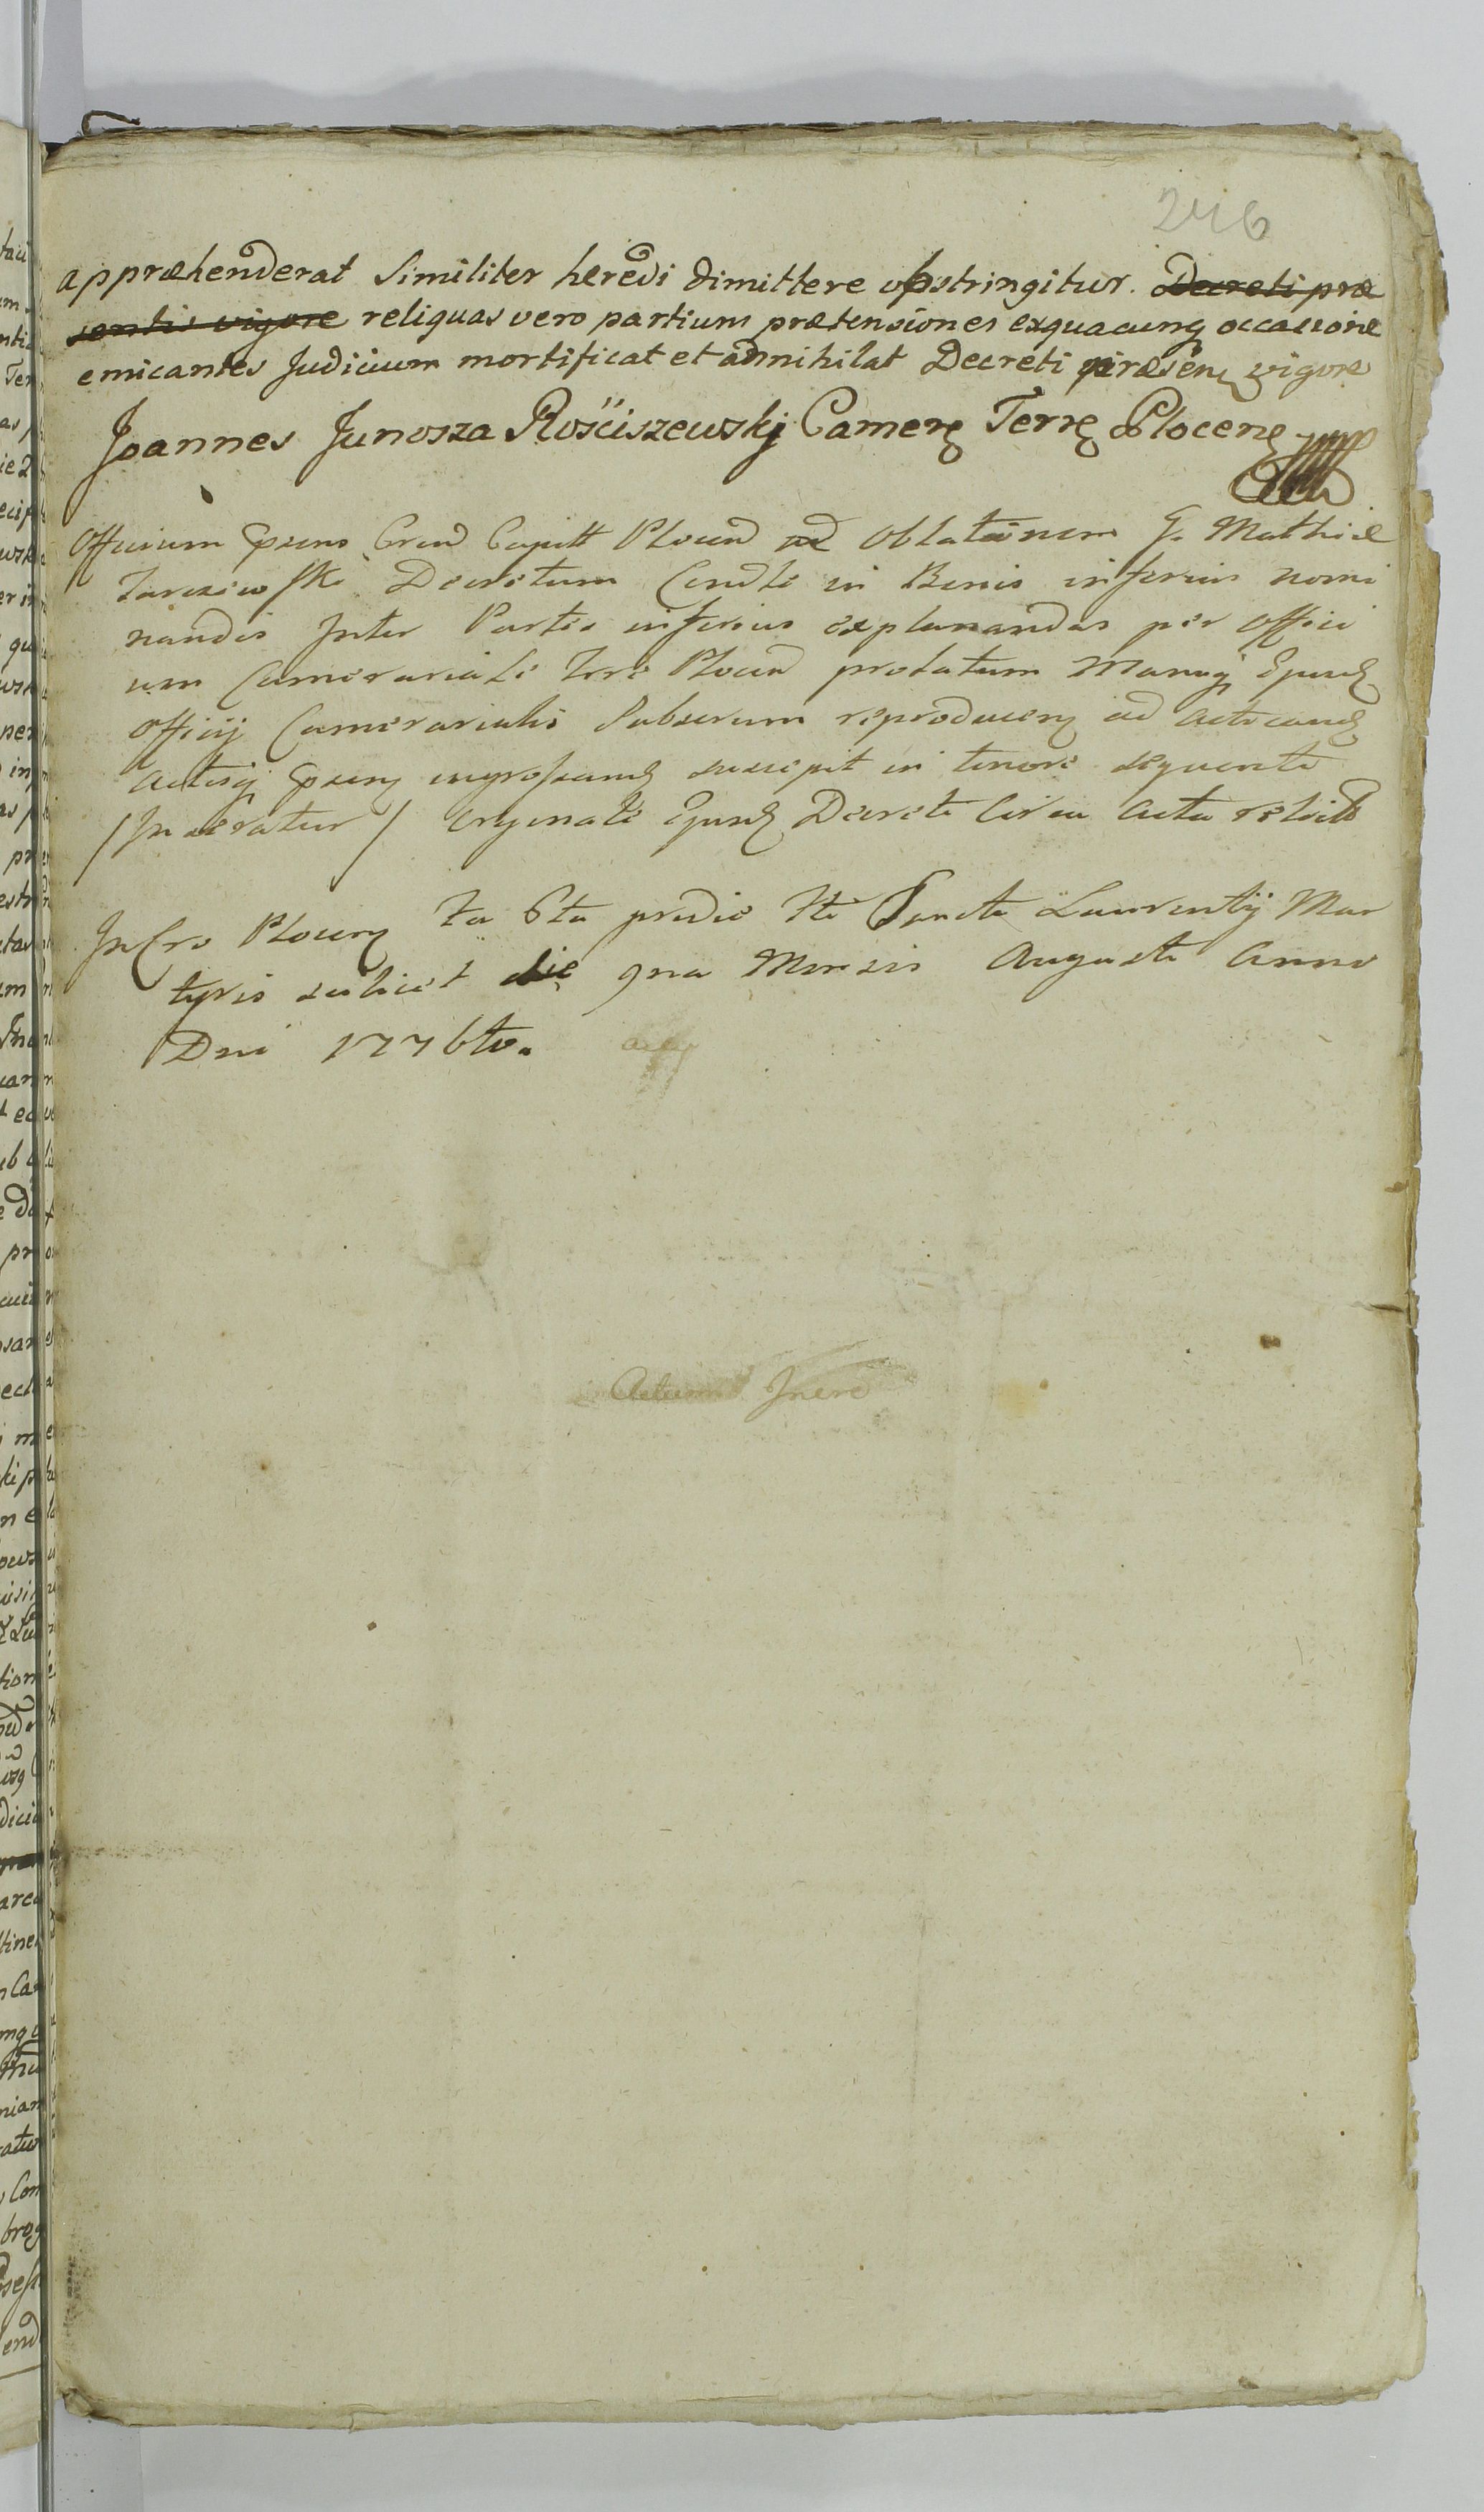 246
appræhenderat Similiter heredi dimittere obstringitur. Decreti præ
sentis vigore reliquas vero partium prætensiones exquacunq occasione
emicantes Judicium mortificat et annihilat Decreti præsen vigore
Joannes Junosza Rościszewskj Camerę Terrę Plocenę
Officium Prens Cren Capitt Plocen ad Oblatãnem G. Mathiæ
Decretum Condle in Benis inferius nomi
nandis Inter Partes inferius explanandas per Offici
um Camerariale Trre Plocen prolatum Manuq Ejusd
Officij Camerarialis Subscrum reproducen ad acticand
Actisq Prens ingrossand suscepit in tenore sequenti
/Inseratur/ Orginale Ejusd Decreti Circa acta relicto
In Cro Plocen Fa 6ta pridie Fti Sancti Laurentij Mar
tyris scilicet die 9na Mensis Augusti Anno
Dni 1776to.
Actum In